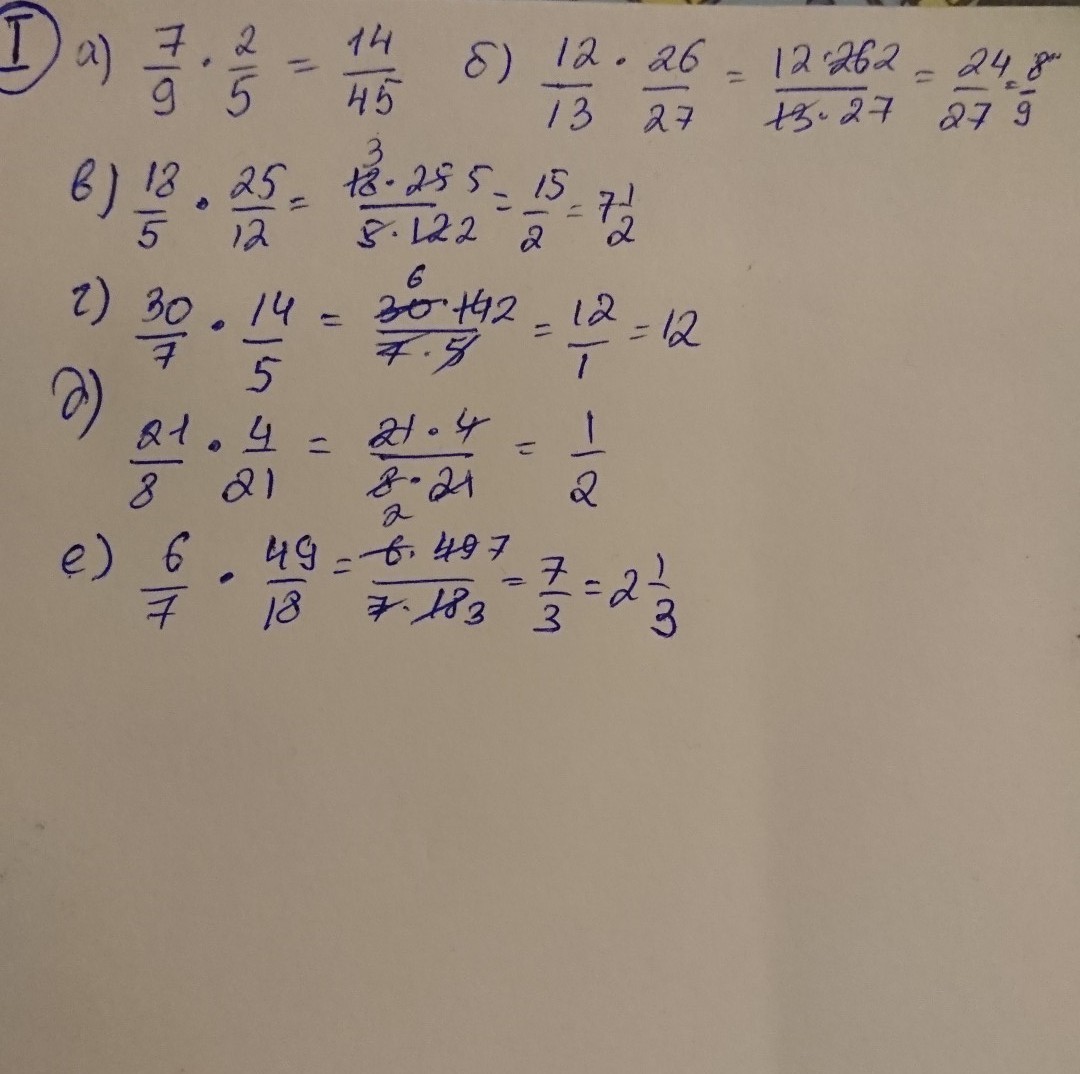 I а) 7/9 · 2/5 = 14/45 б) 12/13 · 26/27 = 12·26 2/13·27 = 24/27 = 8/9
в) 18/5 · 25/12 = 3 18·25 5/5·12 2 = 15/2 = 7 1/2
г) 30/7 · 14/5 = 6 30·14 2/7·5 = 12/1 = 12
д) 21/8 · 4/21 = 21·4/8·21 2 = 1/2
е) 6/7 · 49/18 = 6·49 7/7·18 3 = 7/3 = 2 1/3